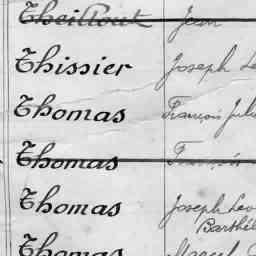 Theillout Jean
Thissier Joseph Le
Thomas François Juli
Thomas François
Thomas Joseph Leo
Barthél
Thomas Marcel